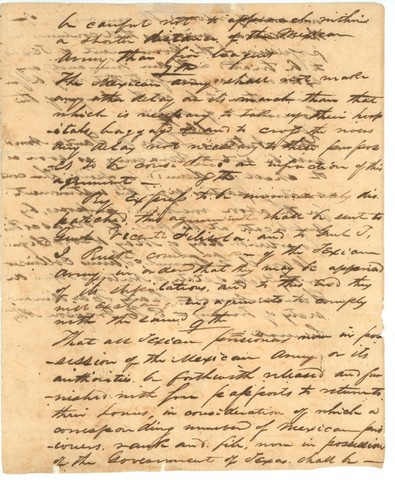 be careful not to approach within
a shorter distance of the Mexican
Army than five leagues
7th
The Mexican army shall not make
any other delay on its march than that
which is necessary to take up their hosp
itals, baggage &c and to cross the rivers
any delay not necessary to these purpos
es to be considered an infraction of this
agreement — 8th
By express to be immediately dis
patched this agreement shall be sent to
Genl Vicente Filisola and to Genl T.
J. Rusk, commander of the Texican
Army, in order that they may be apprised
of its stipulations, and to this end they
will engagements to comply
with the same 9th
That all Texican prisoners now in pos
session of the Mexican Army or its
authorities be forthwith released and fur
nished with free passports to return to
their homes, in consideration of which a
corresponding number of Mexican pris
oners, rank and file, now in possession
of the Government of Texas shall be —